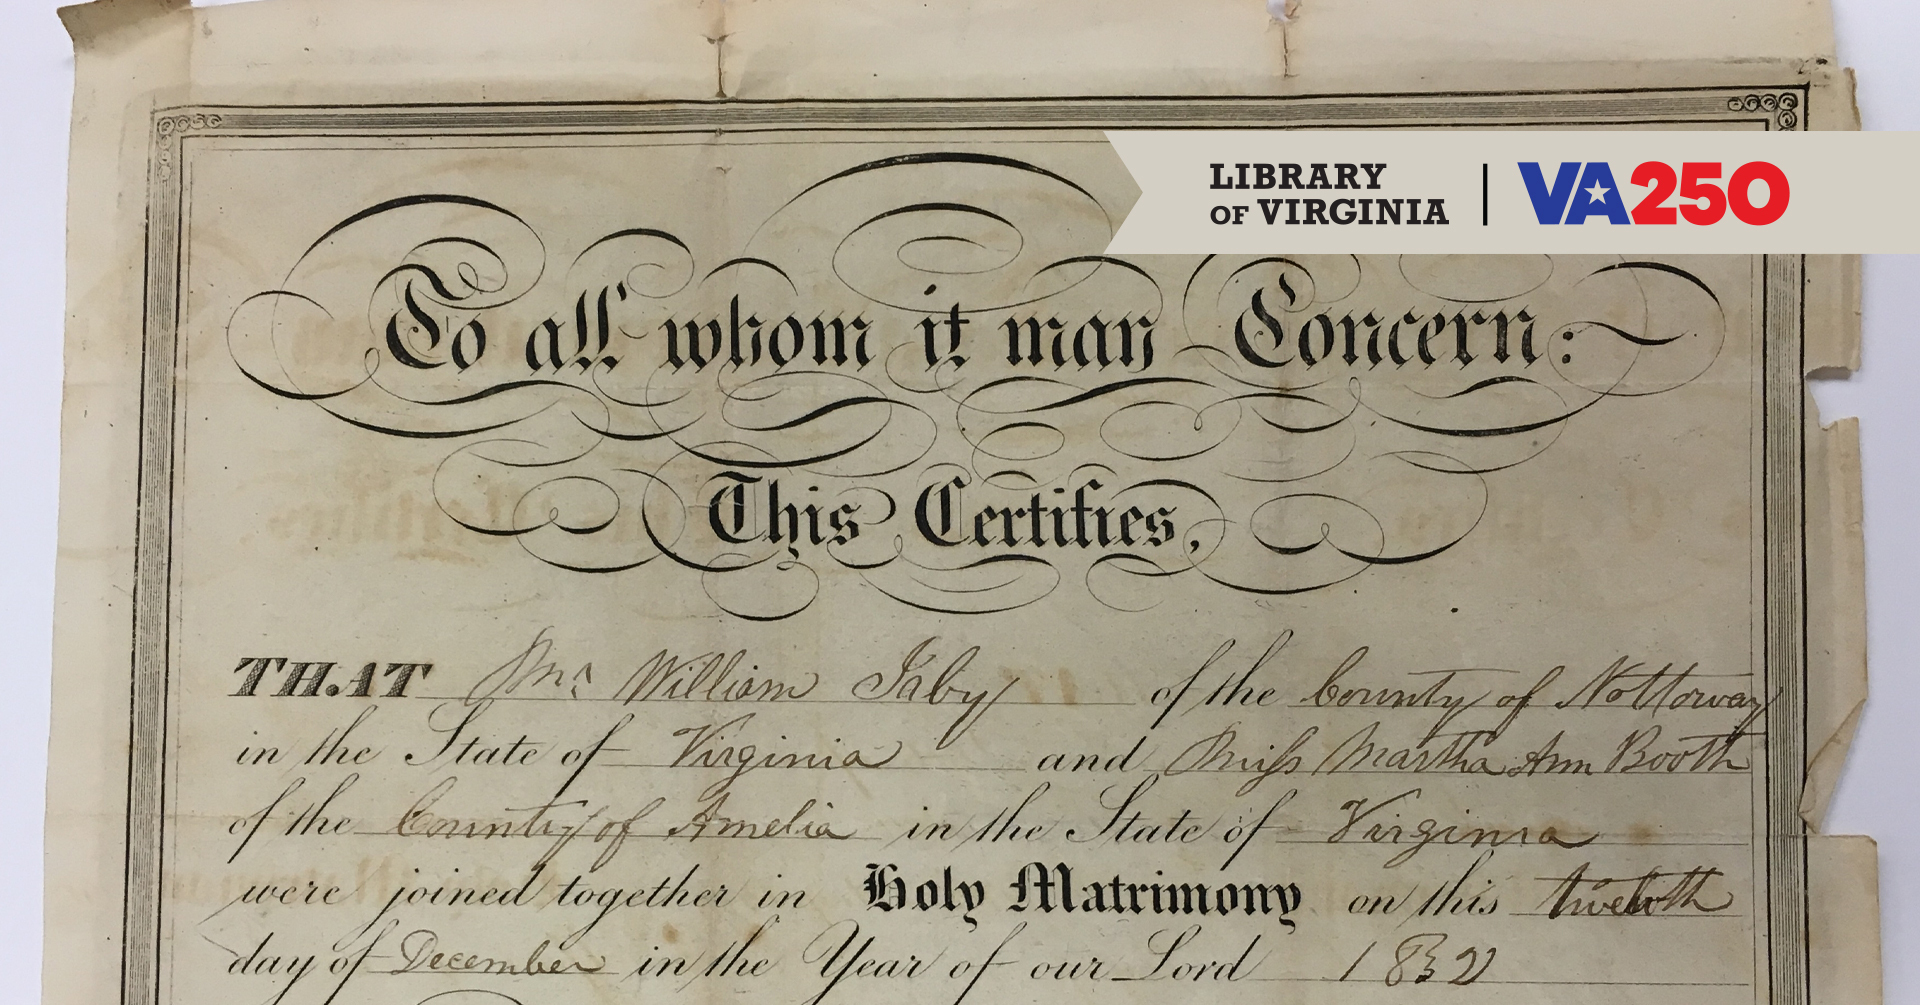 LIBRARY
OF VIRGINIA
VA250
To all whom it may Concern:
This Certifies,
THAT Mr William Irby of the County of Nottoway
in the State of Virginia and Miss Martha Ann Booth
of the County of Amelia in the State of Virginia
were joined together in Holy Matrimony on this twelvth
day of December in the Year of our Lord 1832